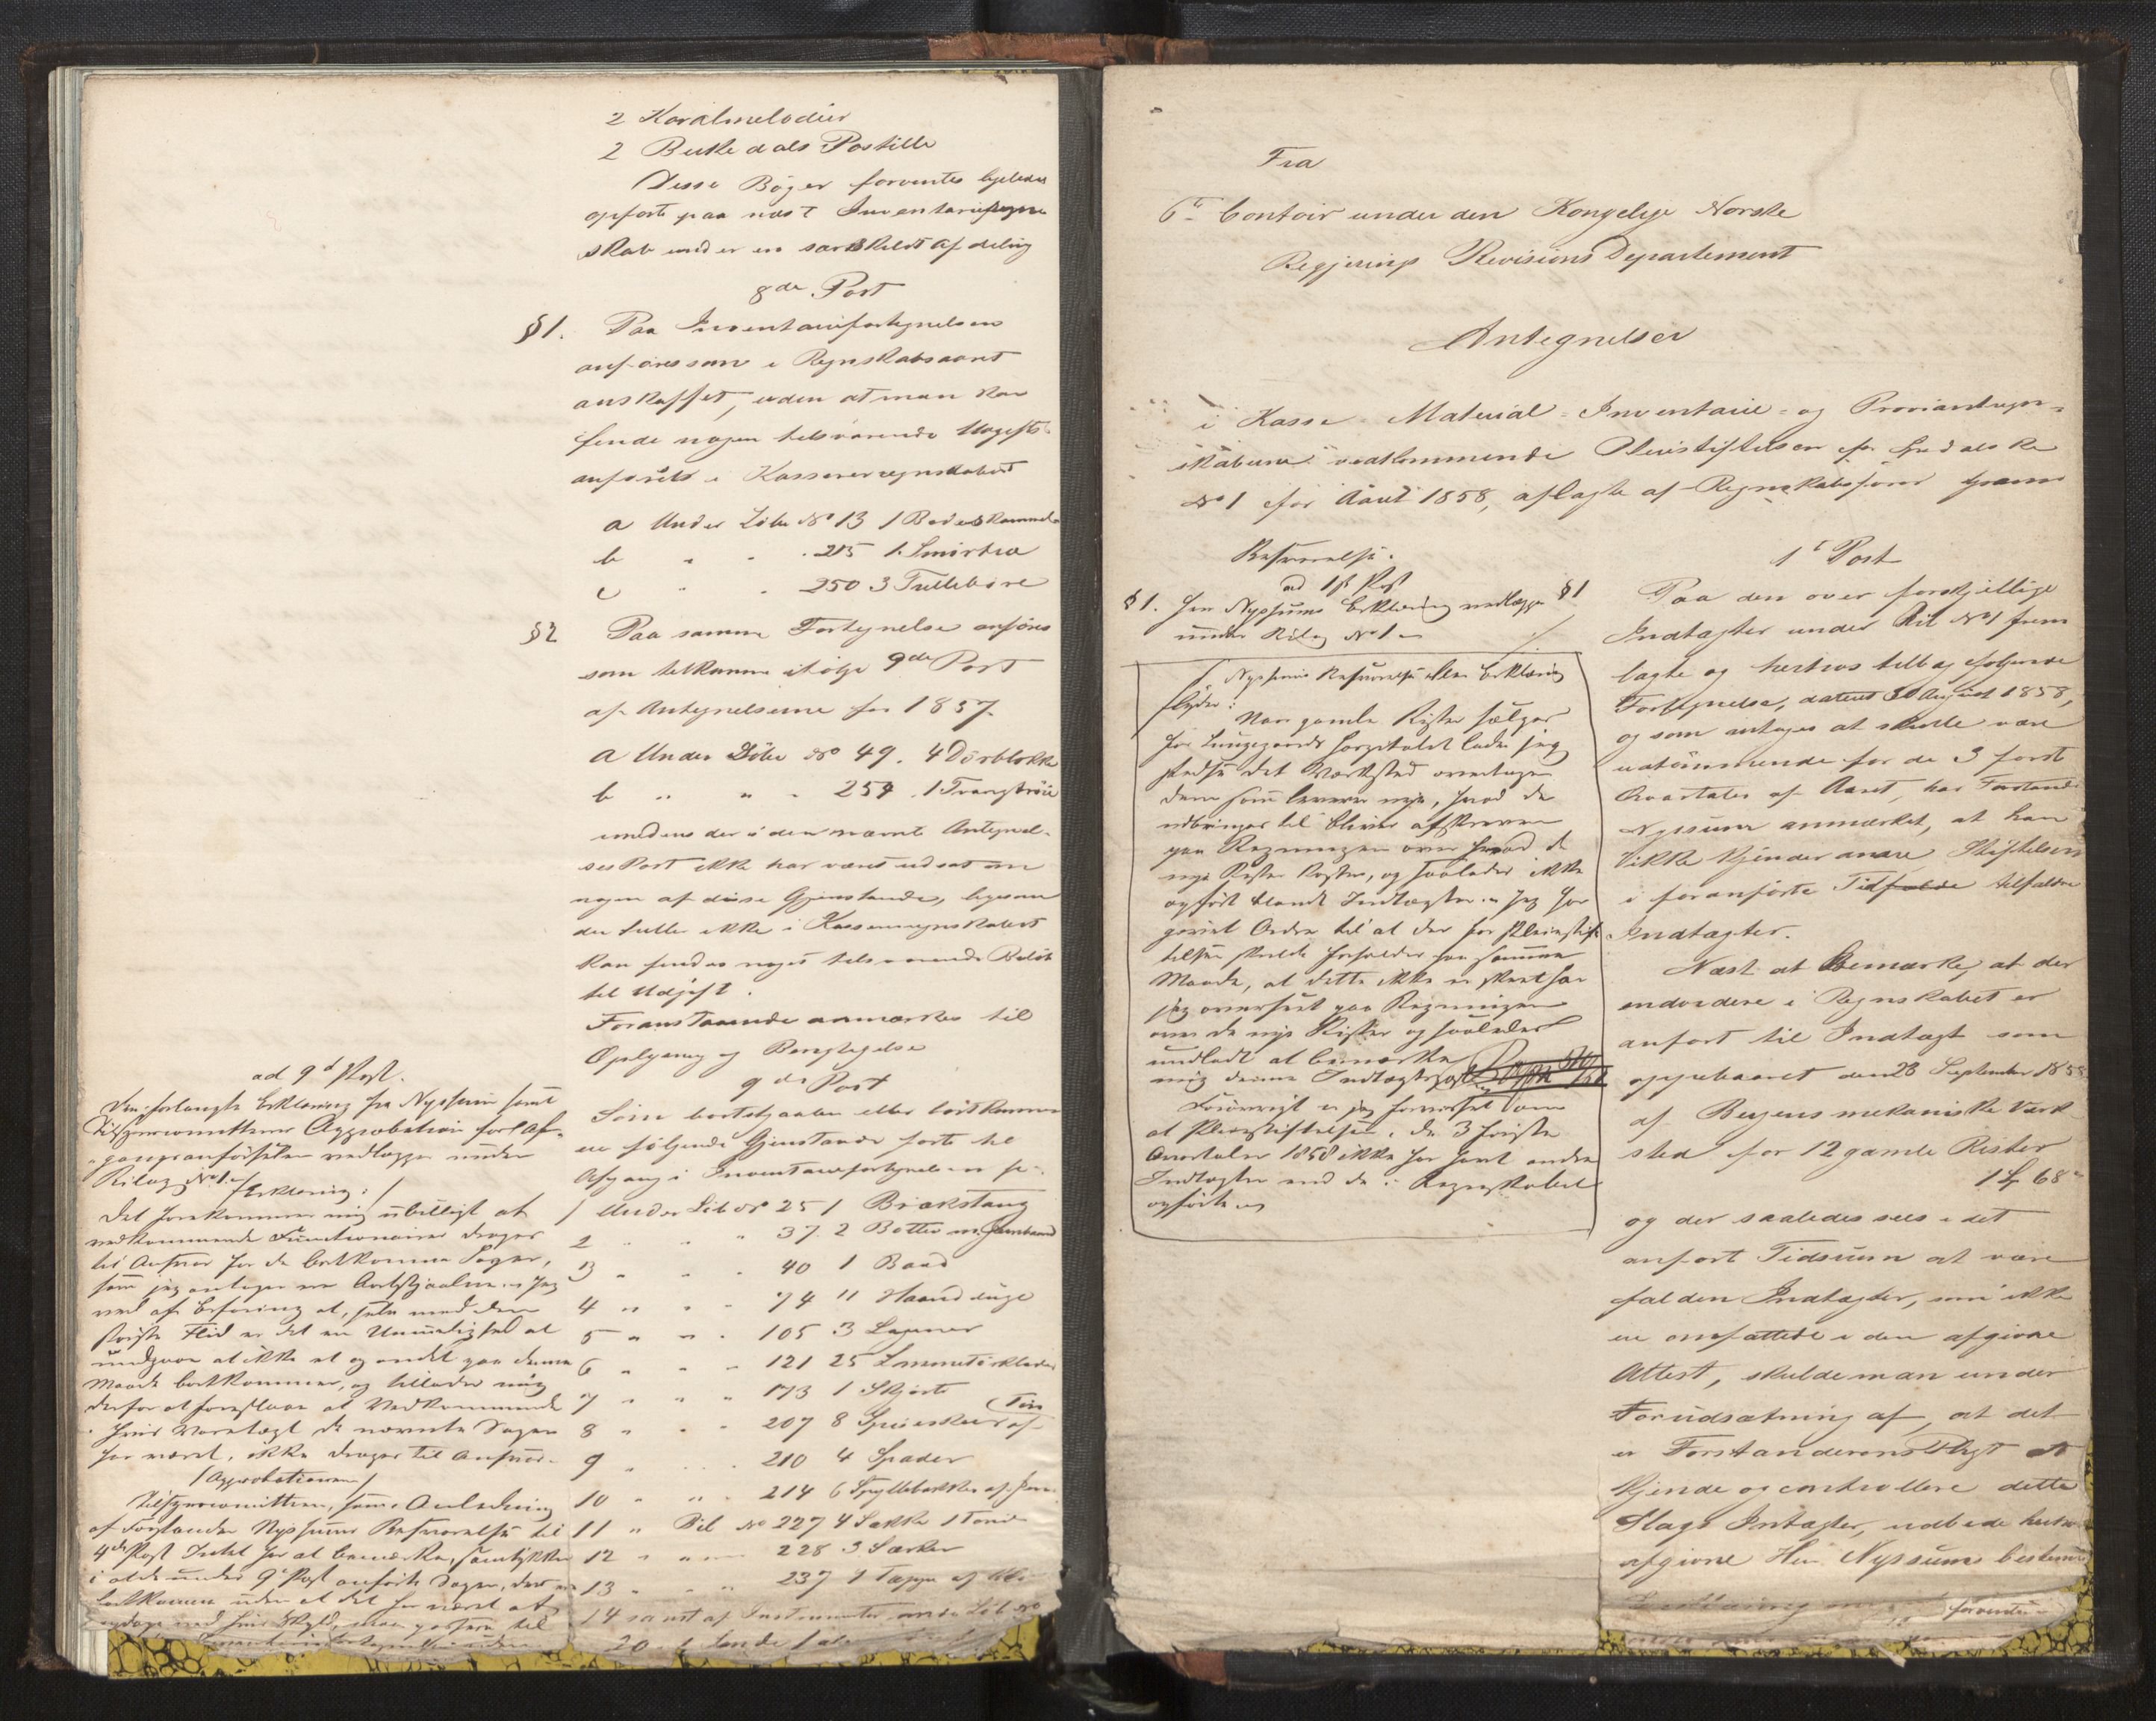 2 Koralmelodier
2 Birkedals Postille
Disse Bøger forventes ligeledes
opførte paa næst Inventarieregn
skab under en særskildt afdeling
8de Post
§1. Paa Inventariefortegnelsen
anføres som i Regnskabsaaret
anskaffet, uden at man kan
finde nogen tilsvarende Udgifts-
anførsel i Kasseregnskabet
a Under Løbe No 13 1
b " " 215 1
c " " 250 3 Trillebøre
§2 Paa samme Fortegnelse anføres
som tilkomne ifølge 9de Post
af Antegnelserne for 1857.
a Under Löbe No 49. 4 Dörblokke
b " " 254 1
medens der i den nævnte Antegnel-
ses Post ikke har været udsat om
nogen af disse Gjenstande, ligesom
der heller ikke i Kasseregnskabet
kan findes noget tilsvarende Beløb
til Udgift.
Foranstaaende anmærkes til
Oplysning og Berigtigelse
9de Post
Som bortstjaalen eller bortkommen
ere følgende Gjenstande førte til
Afgang i Inventariefortegnelsen
1 Under Lib No 25 1 Brækstang
2 " " " 37. 2 Bøtter m. Jernbaand
3 " " " 40 1 Baad
4 " " " 74 11 Haandduge
5 " " " 105 3 Lagener
6 " " " 121 25 Lommetörklæder
7 " " " 173 1 Skjorte
8 " " " 207 8 Spiseskeer af Tin
9 " " " 210 4 Spader
10 " " " 214 6 af Jern
11 " Bil No 227 4 Sække 1 Tønde
12 " " " 228 3 Særker
13 " " " 237 1
14 samt af Instrumenter under Löb No
20
ad 9d Post.
Den forlangte Erklæring fra Nyssum samt
Tilsynscomitteens Approbation for Af-
gangsanførselen vedlægges under
Bilag No 1.
/Erklæring:/
Det forekommer mig ubilligt at
vedkommende Functionairer drages
til Ansvar for de bortkomne Sager,
som jeg antager ere bortstjaalne. Jeg
ved af Erfaring at, selv med den
største Flid er det en Umuelighed at
undgaae at ikke et og andet paa denne
Maade bortkommer, og tillader mig
derfor at foreslaae at Vedkommende
i hvis Varetægt de nævnte Sager
har været, ikke drages til Ansvar.
/Approbationen/
Tilsynscomitteen, som i Anledning
af Forstander Nyssums Besvarelse til
4de Post Intet har at bemærke, samtykker
i at de under 9de Post anførte Sager, der ere
bortkomne uden at det har været at
Fra
6te Contoir under den Kongelige Norske
Regjerings Revisions Departement
Antegnelser
i Kasse- Material- Inventarie- og Proviantregn-
skaberne vedkommende Pleiestiftelsen for Spedalske
No 1 for Aaret 1858, aflagte af Regnskabsfører
Besvarelse.
ad 1ste Post
§1. Herr Nyssums Erklæring vedlægges
under Bilag No 1
Nyssums Besvarelse eller Erklæring
lyder:
Naar gamle Rister sælges
for Lungegaards Hospitalet lader jeg
stedse det Værksted overtage
dem som leverer nye, hvad de
udbringes til bliver afskreven
paa Regningen over hvad de
nye Rister koster, og saaledes ikke
opført blandt Indtægter. Jeg har
givet Ordre til at der for Pleiestif-
telsen skulde forholdes paa samme
Maade, at dette ikke er skeet har
jeg overseet paa Regningen
over de nye Rister og saaledes
undladt at bemærke
mig denne Indtægtspost
Forøvrigt er jeg forvisset om
at Pleiestiftelsen i de 3 første
Qvartaler 1858 ikke har havt andre
Indtægter end de i Regnskabet
opførte
1te Post
§1 Paa den over forskjellige
Indtægter under Bil No 1 frem
lagte og hertvos tilbagefølgende
Fortegnelse, dateret 30 August 1858,
og som antages at skulle være
udtömmende for de 3 först
Qvartaler af Aaret, har Forstander
Nyssum anmærket, at han
ikke kjender andre Stiftelsen
i foranførte Tid tilfaldne
Indtægter.
Næst at bemærke, at der
endvidere i Regnskabet er
anført til Indtægt som
oppebaaret den 28 September 1858
af Bergens mekaniske Værk-
sted for 12 gamle Rister
1 68
og der saaledes sees i det
anført Tidsrum at være
falden Indtægter, som ikke
ere omfattede i den afgivne
Attest, skulde man under
Forudsætning af, at det
er Forstanderens Pligt at
kjende og controllere dette
Slags Intægter, udbede
afgivne Herr Nyssums bestemte
Erklæring
forventes